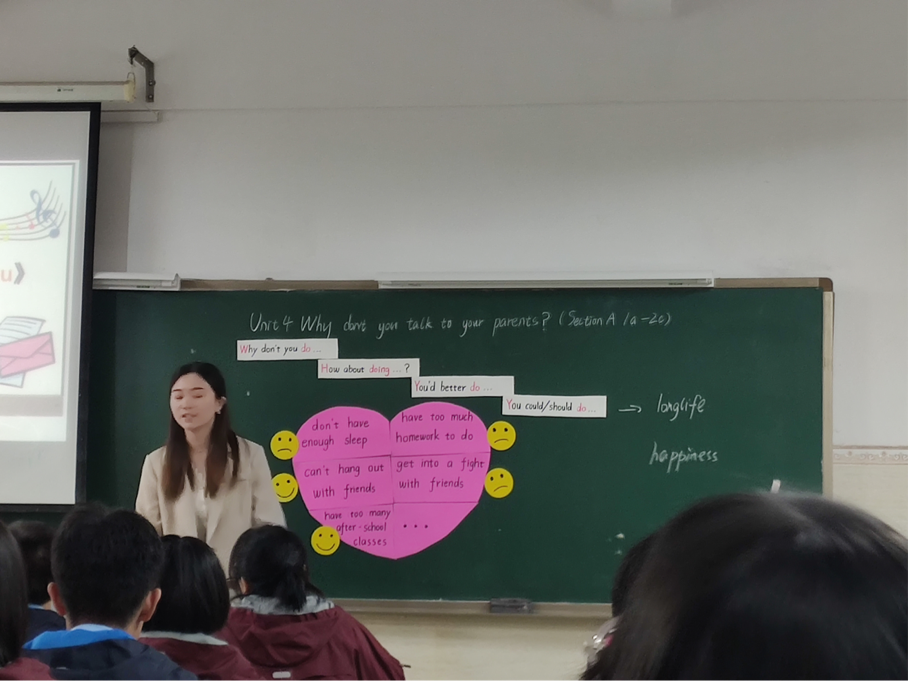 u》
Unit 4 Why don't you talk to your parents? (Section A 1a-2c)
Why don't you do ...
How about doing ... ?
You'd better do ...
You could/should do ...
→ longlife
happiness
don't have
enough sleep
have too much
homework to do
can't hang out
with friends
get into a fight
with friends
have too many
after-school
classes
...